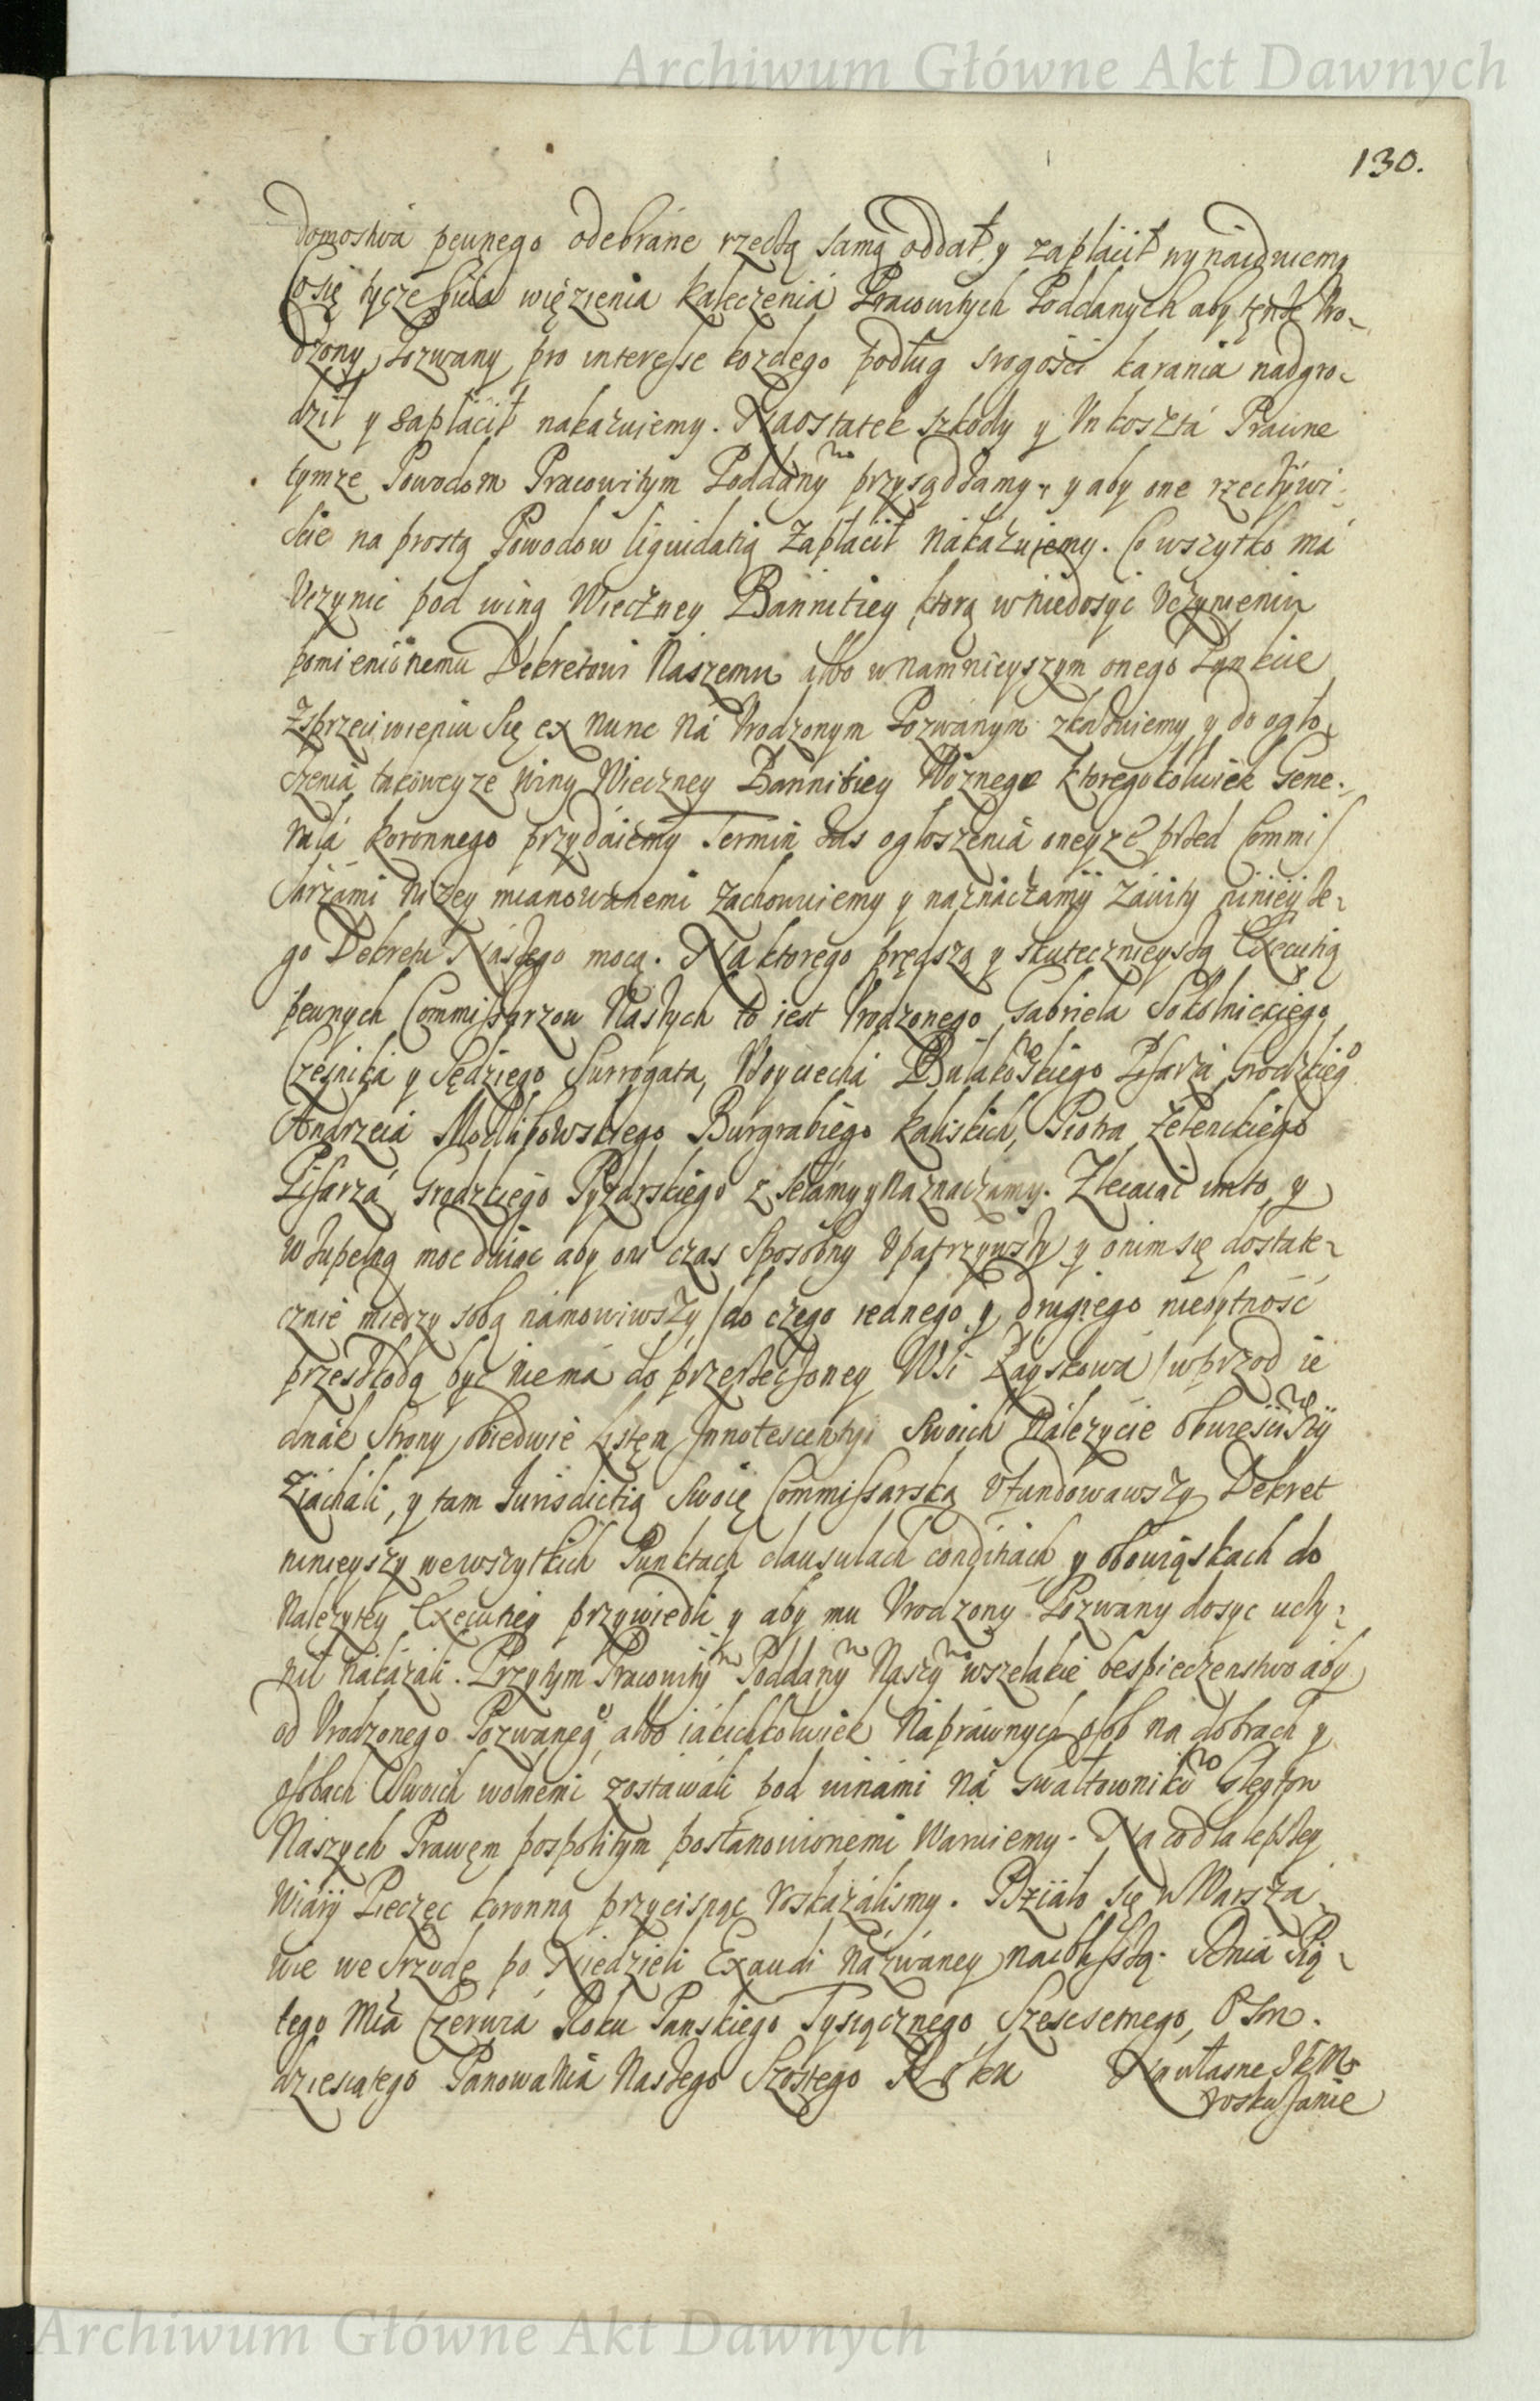 Archiwum Główne Akt Dawnych
130.
domostwá pewnego odebráne rzeczą samą oddał y zapłácił wynaiduiemy
Co się tycze bicia więzienia kaleczenia Pracowitych Poddanych aby tenże Vro-
dzony Pozwany pro interesse kozdego podług srogości karania nadgro-
dził y zapłácił nakazuiemy. Naostatek szkody y Vnkosztá Prawne
tymze Powodom Pracowitym Poddany przysądzamy y aby one rzeczÿwi-
scie na prostą Powodow liquidatią Zapłácił nákázuiemy. Co wszytko má
Vczynic pod winą Wieczney Bannitiey ktorą wniedosyc Vczynieniu
pomienionemu Dekretowi Naszemu albo w namnieyszym onego Punkcie
Zsprzeciwieniu Się ex nunc ná Vrodzonym Pozwánym zkazuiemy y do ogło-
szenia takoweyze winy Wieczney Bannitiey Woznego ktoregokolwiek Gene-
rałá koronnego przydáiemy Termin zas ogłoszeniá oneyze przed Commis
sarzámi nizey mianowanemi zachowuiemy y náznáczámy Záwity ninieysze-
go Dekretu Nászego mocą. Na ktorego prędszą y skutecznieyszą Executią
pewnych Commissarzow Naszych to iest Vrodzonego Gabriela Sokolnickiego
Cześnika y Sędziego Surrogata, Woyciecha Bułakowskiego Pisarza Grodzkiego
Andrzeia Modlibowskiego Burgrabiego kaliskich, Piotra Zelenckiego
Pisarzá Grodzkiego Pyzdrskiego zsełámy y náznaczámy. Zlecaiąc im to y
w zupełną moc daiąc aby oni czas sposobny Vpatrzywszy y onim się dostate-
cznie miedzy sobą námowiwszy /do czego iednego y drugiego niebytność
przeszkodą byc niemá do przerzeczoney Wsi Zayskowá /wprzod ie
dnák Strony obiedwie Listem Innotescentyi Swoich Nalezycie obwieściwszÿ
Ziácháli, y tam Iurisdictią Swoię Commissarską Vfundowawszy Dekret
ninieyszy wewszytkich Punktach clausulach conditiách y obowiąskach do
Nalezytey Executiey przywiedli y aby mu Vrodzony Pozwány dosyc uczy-
nił nakázali. Przytym Pracowity Poddany Naszy wszelakie bespieczenstwo aby
od Vrodzonego Pozwaneg albo iákichkolwiek Náprawnych osob na dobrach y
osobach Swoich wolnemi zostáwáli pod winámi ná Gwałtownikow Gleytow
Nászych Prawem pospolitym postanowionemi Waruiemy. Na co dla lepszey
Wiáry Pieczęc koronną przycisnąc roskazálismy. Działo się w Warsza
wie we Srzodę po Niedzieli Exaudi Názwáney naibliszszą. Dnia Pią-
tego Mcá Czerwcá Roku Panskiego Tysiącznego Szescsetnego, Osm-
dziesiątego Panowania Naszego Szostego Roku Na własne JKMc
roskazanie
Archiwum Główne Akt Dawnych